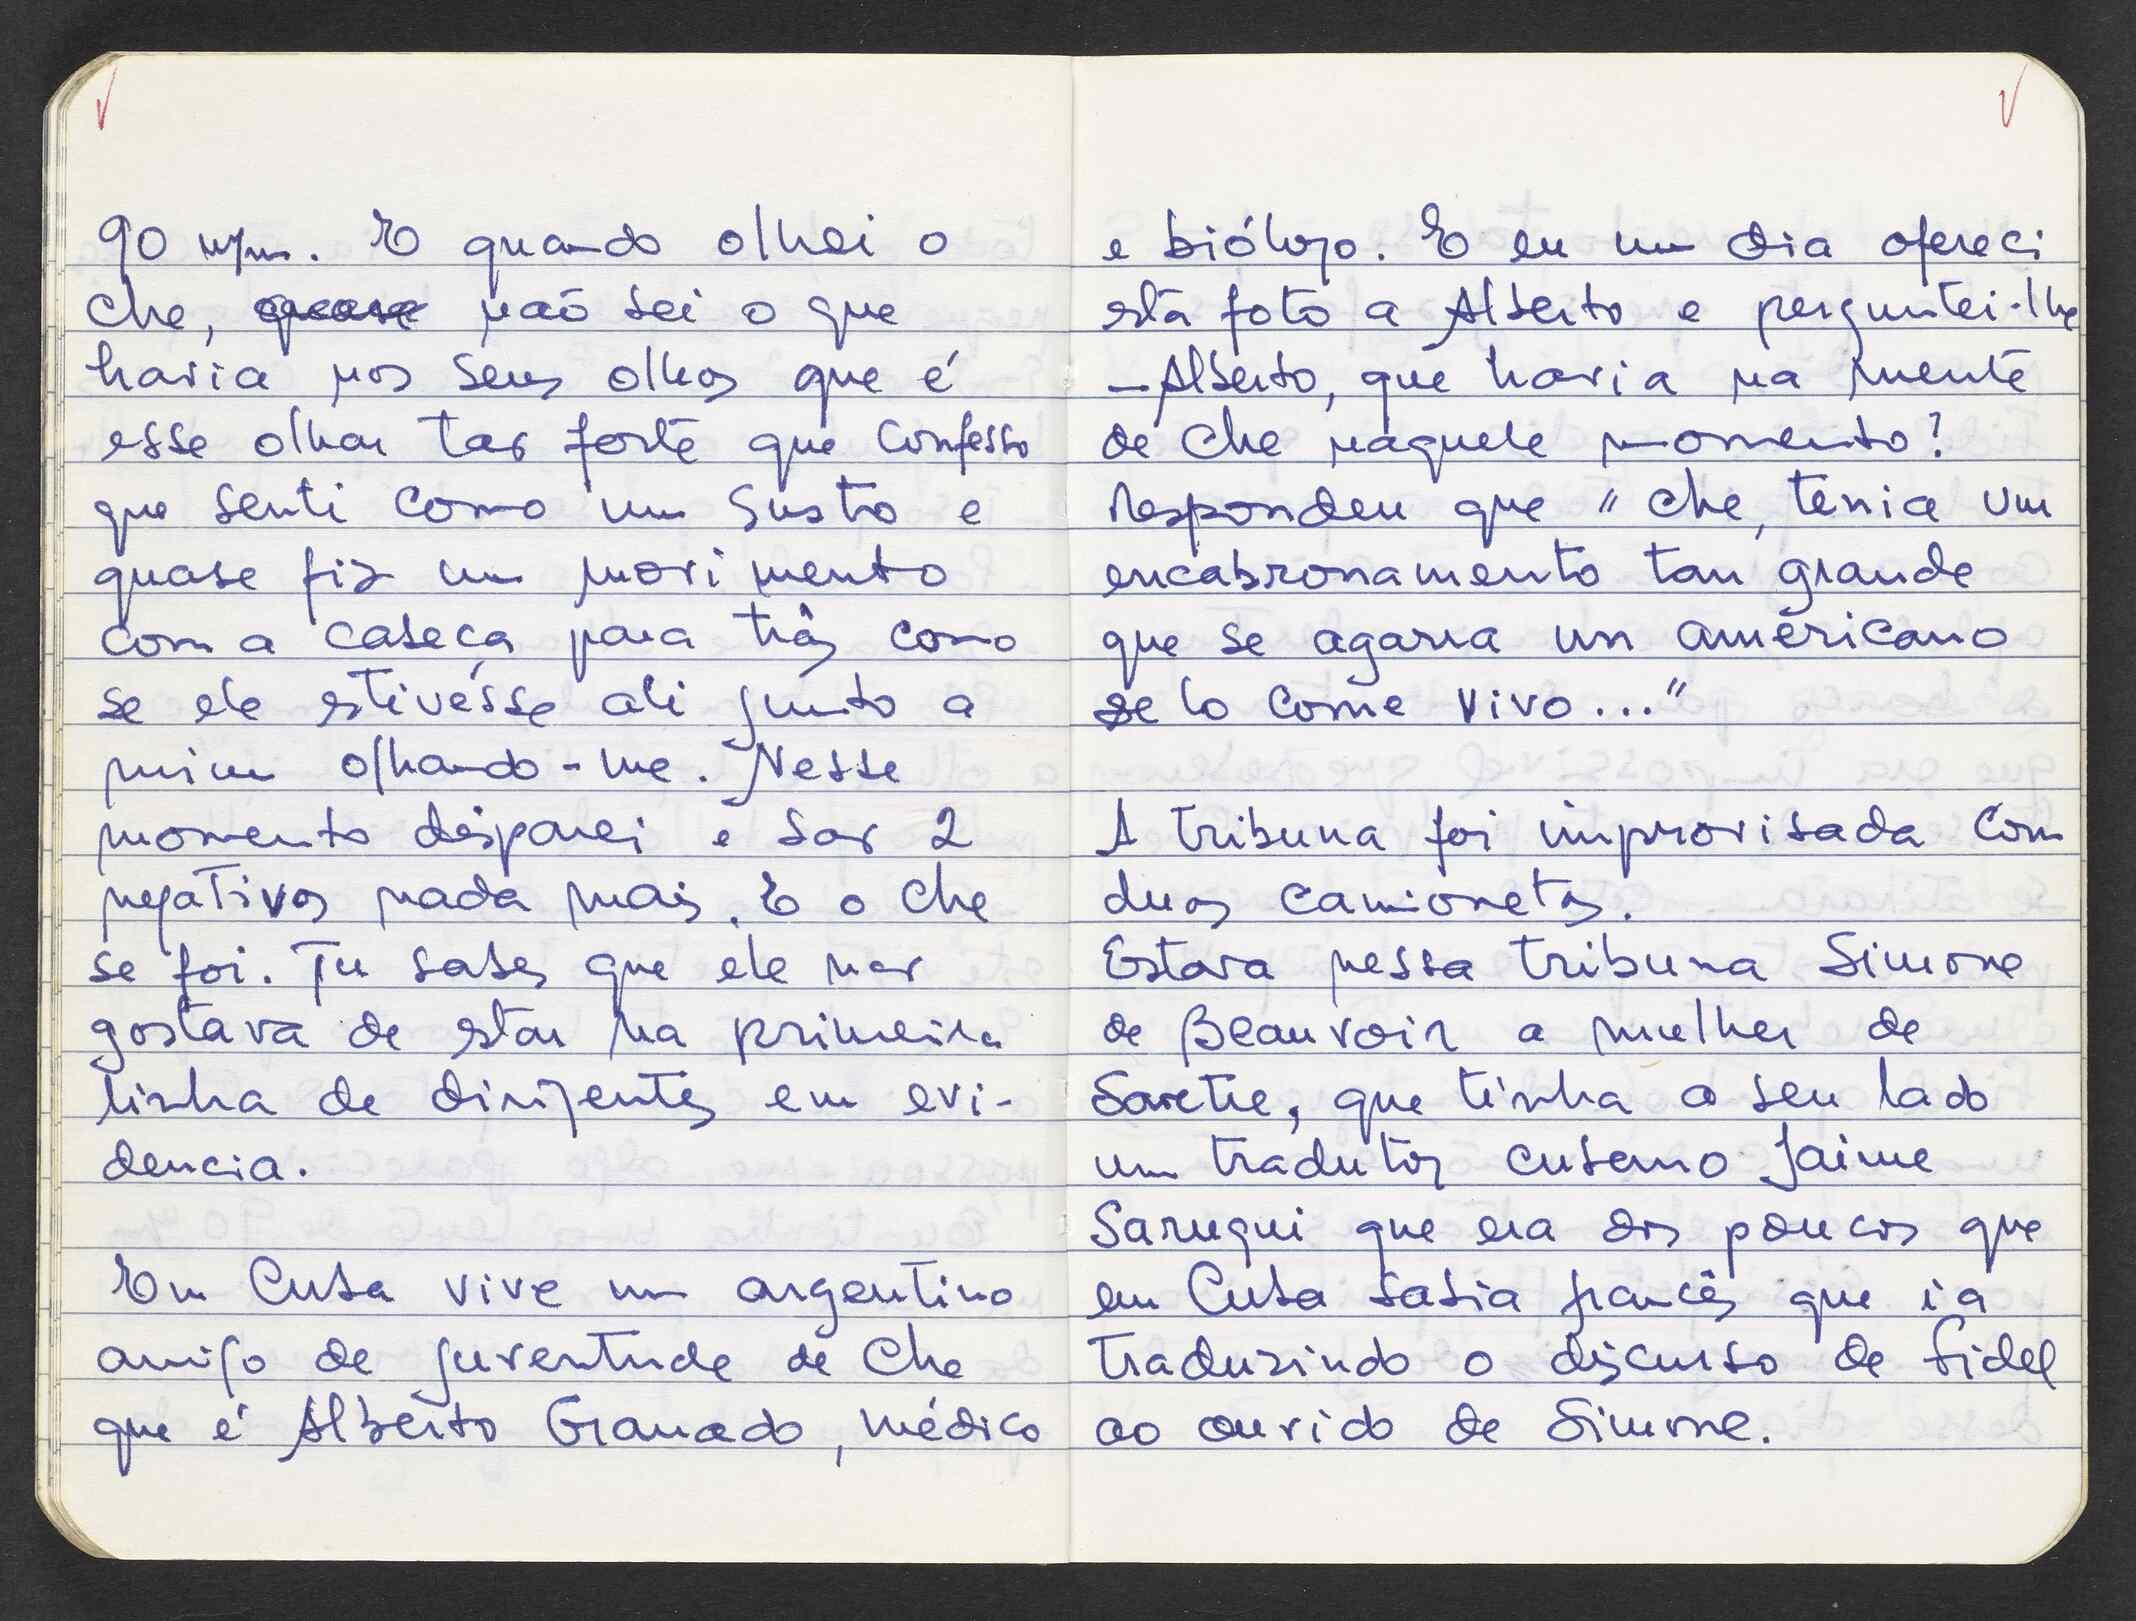 90 m/m. E quando olhei o
Che, quase não sei o que
havia nos seus olhos que é
esse olhar tão forte que confesso
que senti como um susto e
quase fiz um movimento
com a cabeça para trás como
se ele estivésse ali junto a
mim olhando-me. Nesse
momento disparei e são 2
negativos nada mais. E o Che
se foi. Tu sabes que ele não
gostava de estar na primeira
linha de dirigentes em evi-
dencia.
Em Cuba vive um argentino
amigo de juventude de Che
que é Alberto Granado, médico
e biólogo. E eu um dia ofereci
esta foto a Alberto e perguntei-lhe
- Alberto, que havia na mente
de Che naquele momento?
Respondeu que "Che, tenia um
encabronamento tan grande
que se agarra un americano
se lo come vivo..."
A tribuna foi improvisada com
duas camionetas.
Estava nessa tribuna Simone
de Beauvoir a mulher de
Sartre, que tinha a seu lado
um tradutor cubano Jaime
Sarugui que era dos poucos que
em Cuba sabia francês que ia
traduzindo o discurso de Fidel
ao ouvido de Simone.